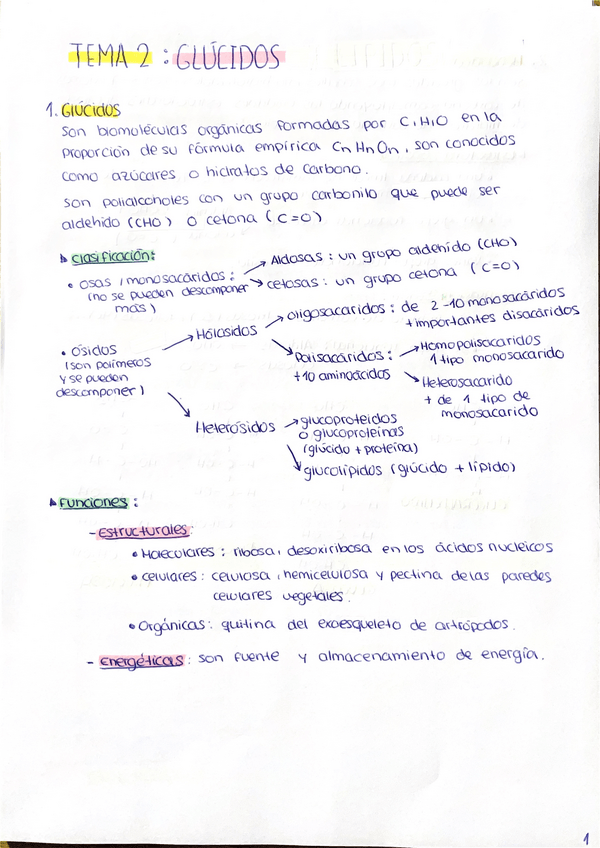 TEMA 2 : GLÚCIDOS
1. Glúcidos
Son biomoléculas orgánicas formadas por C, H, O en la
proporción de su fórmula empírica Cn Hn On, son conocidos
como azúcares o hidratos de carbono.
Son polialcoholes con un grupo carbonilo que puede ser
aldehído (CHO) o cetona (C=O)
Clasificación:
• Osas / monosacáridos :
(no se pueden descomponer
más)
→ Aldosas : un grupo aldehído (CHO)
→ cetosas : un grupo cetona (C=O)
• Ósidos
(son polímeros
y se pueden
descomponer)
→ Hólosidos
→ Oligosacáridos : de 2-10 monosacáridos
+importantes disacáridos
Polisacáridos :
+10 aminoácidos
→ Homopolisacáridos
1 tipo monosacárido
→ Heterosacarido
+ de 1 tipo de
monosacárido
→ Heterósidos
→ glucoproteidos
o glucoproteínas
(glúcido + proteína)
glucolípidos (glúcido + lípido)
Funciones :
- Estructurales:
• Moleculares : ribosa, desoxirribosa en los ácidos nucleicos
• celulares : celulosa, hemicelulosa y pectina de las paredes
celulares vegetales.
• Orgánicas : quitina del exoesqueleto de artrópodos.
- Energéticas : son fuente y almacenamiento de energía.
1